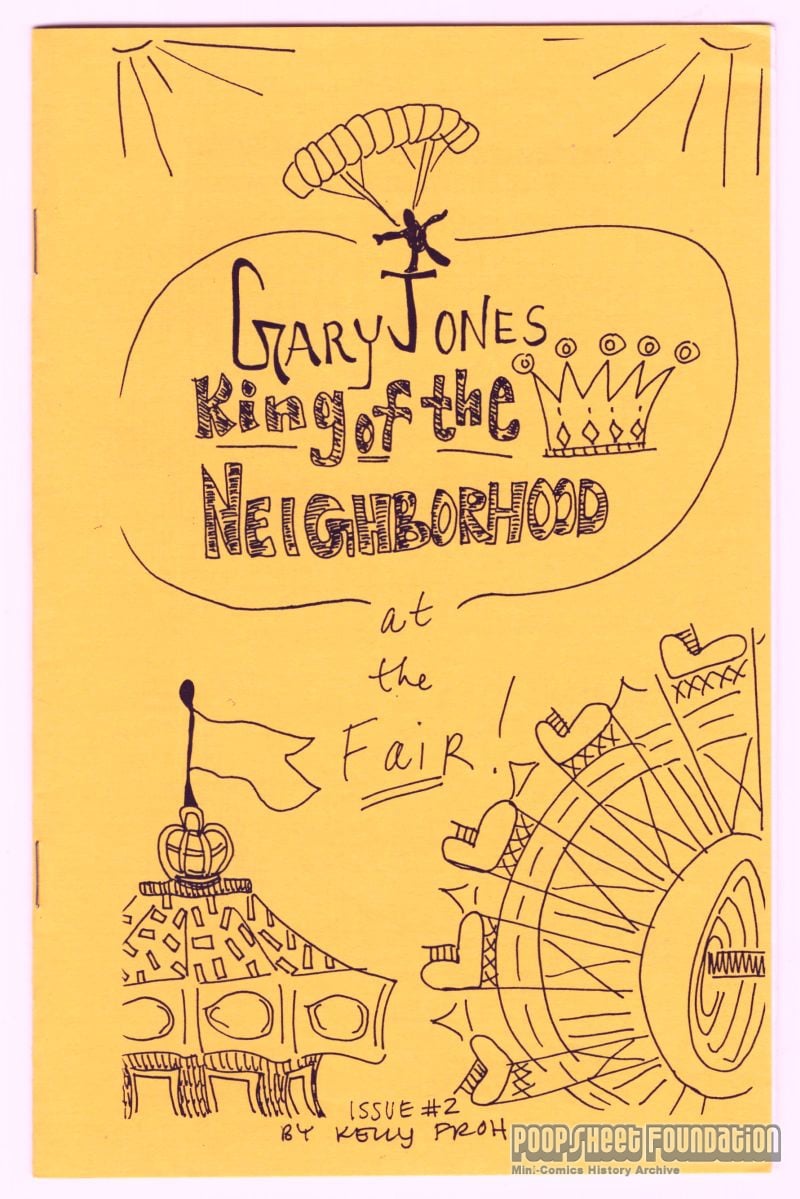 GARY JONES
King of the
NEIGHBORHOOD
at
the
Fair!
ISSUE #2
BY KELLY FROH
POOPSHEET FOUNDATION
Mini-Comics History Archive